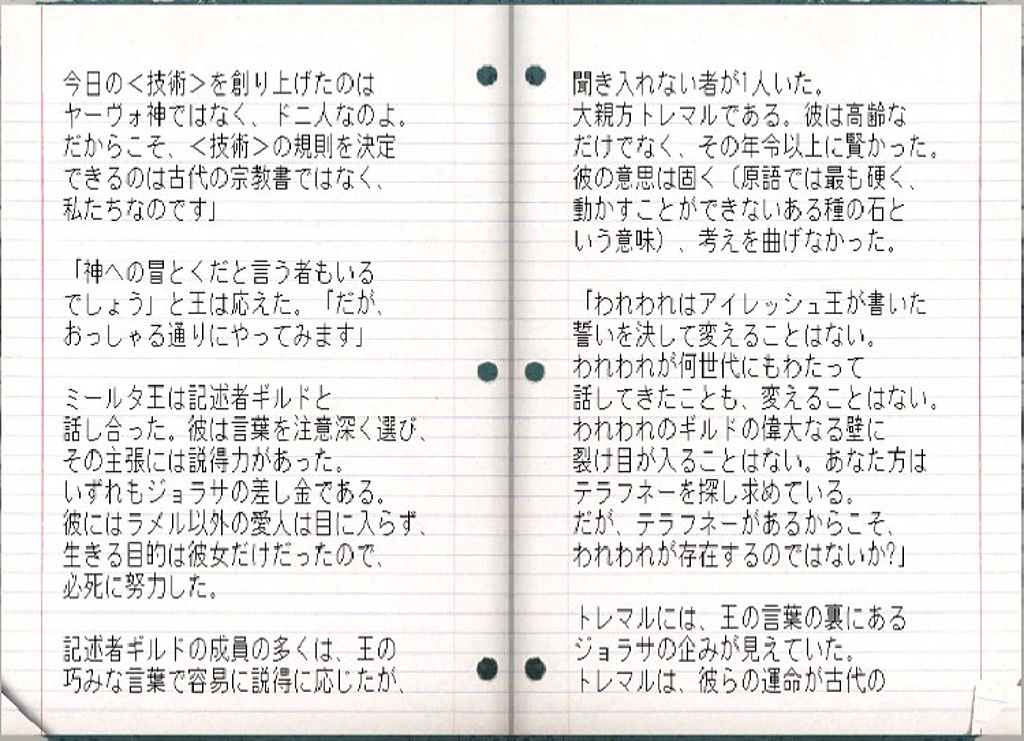 今日の<技術>を創り上げたのは
ヤーヴォ神ではなく、ドニ人なのよ。
だからこそ、<技術>の規則を決定
できるのは古代の宗教書ではなく、
私たちなのです」
「神への冒とくだと言う者もいる
でしょう」と王は応えた。「だが、
おっしゃる通りにやってみます」
ミールタ王は記述者ギルドと
話し合った。彼は言葉を注意深く選び、
その主張には説得力があった。
いずれもジョラサの差し金である。
彼にはラメル以外の愛人は目に入らず、
生きる目的は彼女だけだったので、
必死に努力した。
記述者ギルドの成員の多くは、王の
巧みな言葉で容易に説得に応じたが、
聞き入れない者が1人いた。
大親方トレマルである。彼は高齢な
だけでなく、その年令以上に賢かった。
彼の意思は固く（原語では最も硬く、
動かすことができないある種の石と
いう意味）、考えを曲げなかった。
「われわれはアイレッシュ王が書いた
誓いを決して変えることはない。
われわれが何世代にもわたって
話してきたことも、変えることはない。
われわれのギルドの偉大なる壁に
裂け目が入ることはない。あなた方は
テラフネーを探し求めている。
だが、テラフネーがあるからこそ、
われわれが存在するのではないか?」
トレマルには、王の言葉の裏にある
ジョラサの企みが見えていた。
トレマルは、彼らの運命が古代の